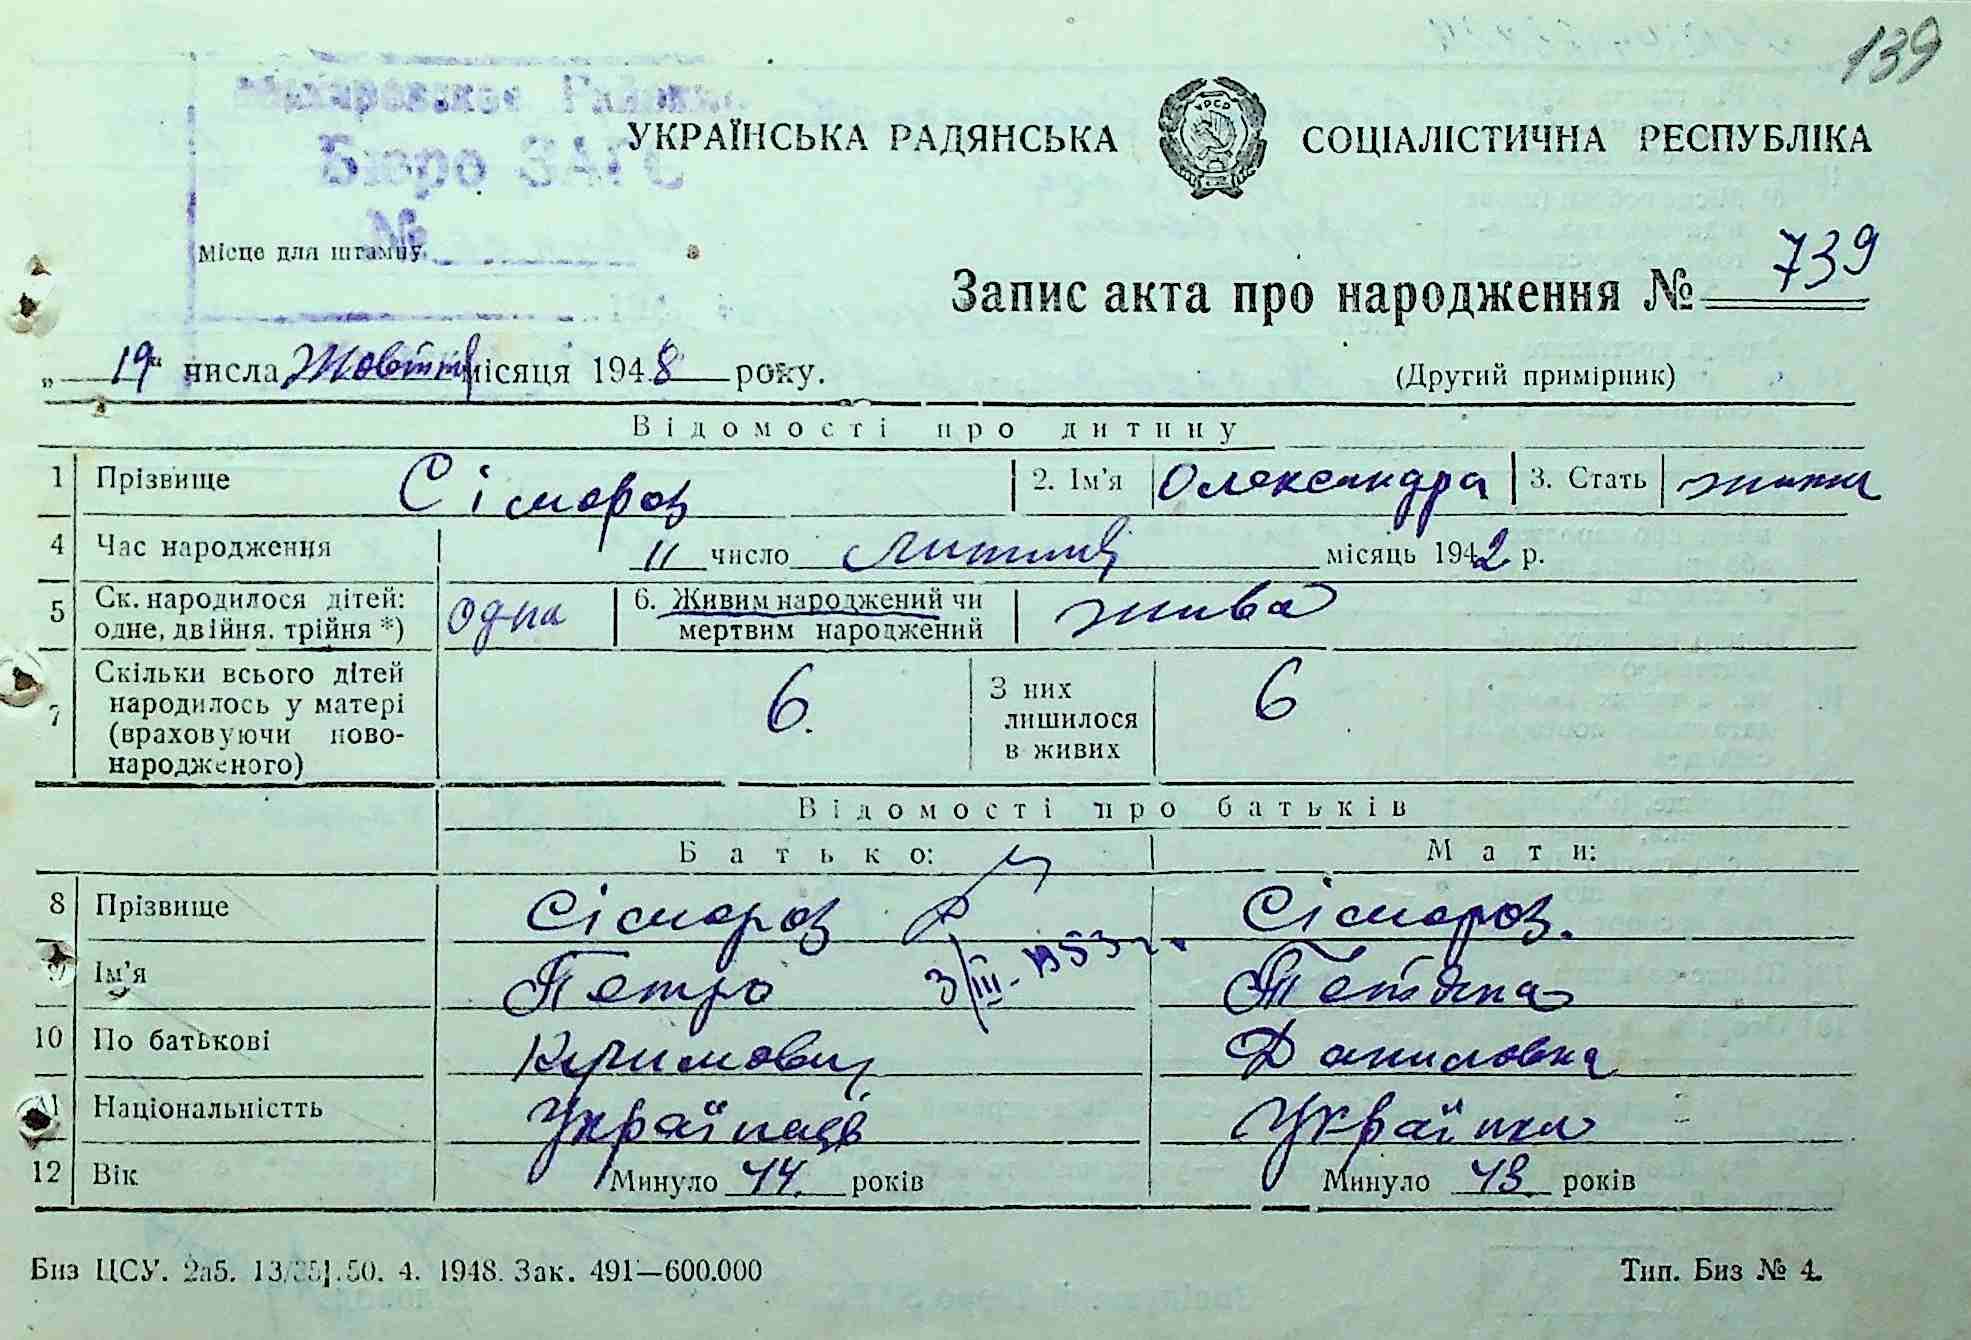 139
Бюро ЗАГС
№
УКРАЇНСЬКА РАДЯНСЬКА СОЦІАЛІСТИЧНА РЕСПУБЛІКА
УРСР
Місце для штампу
Запис акта про народження № 739
„19“ числа Жовтня місяця 1948 року.
(Другий примірник)
Відомості про дитину
1 Прізвище Сімороз 2. Ім'я Олександра 3. Стать
4 Час народження 11 число лютий місяць 1942 р.
5 Ск. народилося дітей: одна 6. Живим народжений чи жива
одне, двійня. трійня *) мертвим народжений
7 Скільки всього дітей 6. З них 6
народилось у матері лишилося
(враховуючи ново- в живих
народженого)
Відомості про батьків
Батько: Мати:
8 Прізвище Сімороз Сімороз.
9 Ім'я Петро 3/III-1953 г. Тетяна
10 По батькові Даниловна
11 Національністть Українець Українка
12 Вік Минуло 44. років Минуло 43. років
Биз ЦСУ. 2а5. 50. 4. 1948. Зак. 491—600.000
Тип. Биз № 4.